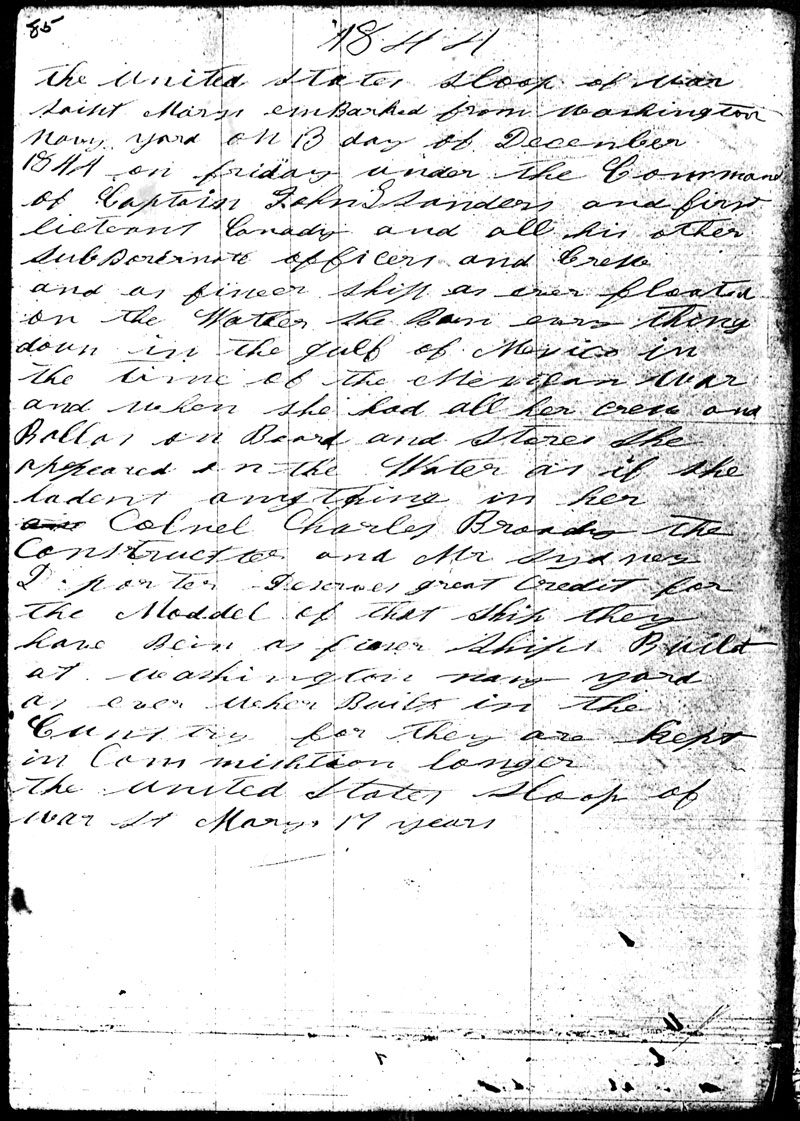 85
1844
the United States Sloop of War
Saint Marys embarked from Washington
Navy yard on 13 day of December
1844 on friday under the Command
of Captain John S Sanders and first
lieteant Canady and all his other
Subdorernate officers and Crew
and as fineer ship as ever floated
on the Watter She Ran evry thing
down in the gulf of Mexico in
the time of the Mexican War
and when she had all her crew and
Ballas on Board and Stores She
appeared on the Water as if she
hadent anything in her
Colnel Charles Broady the
Constructer and Mr Sydney
D. porter Deserves great Credit for
the Moddel of that Ship they
have Bein as finer Ships Build
at Washington navy yard
as ever wher Built in the
Cunstry for they are Kept
in Commishtion longer
the United States Sloop of
War St Marys 17 years